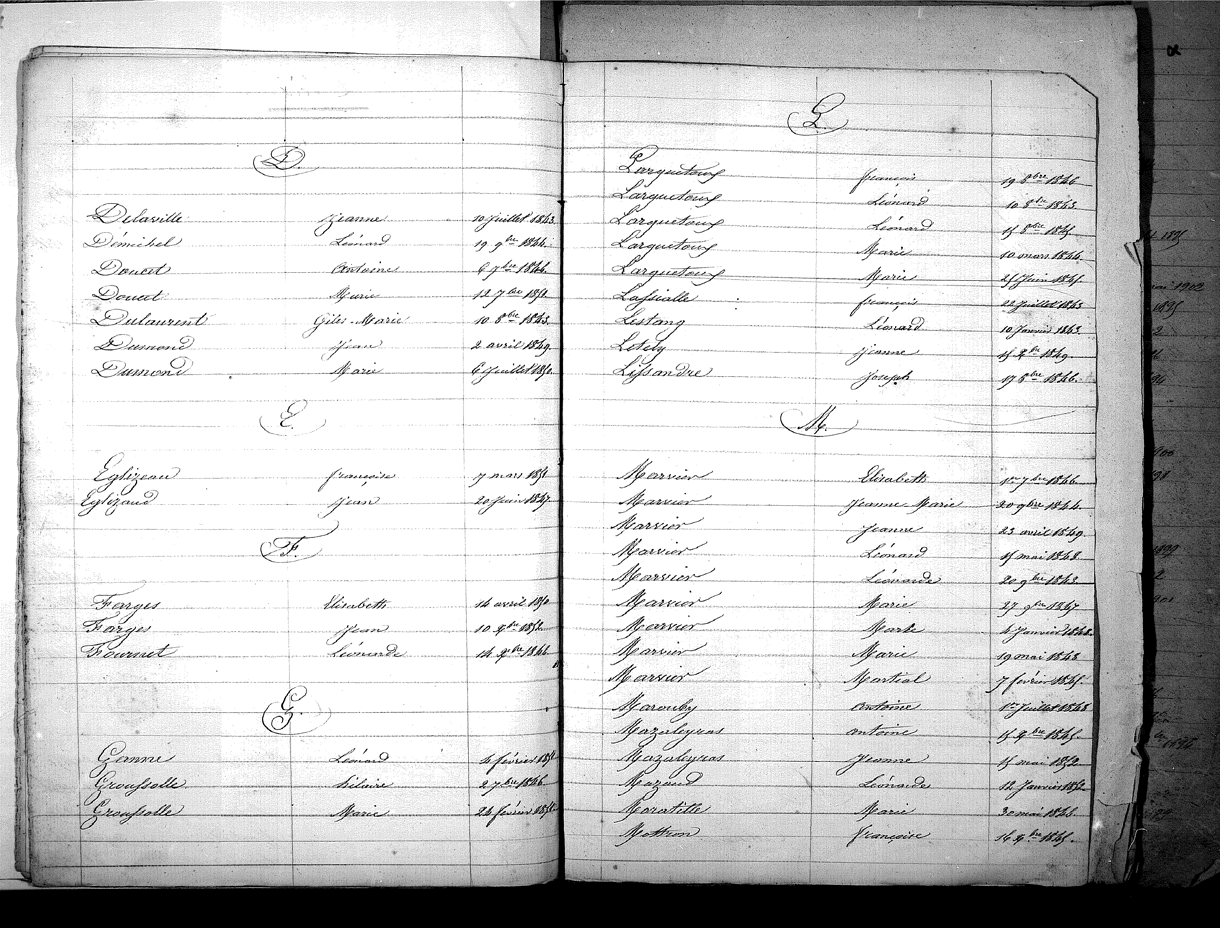 D.
Delaville Jeanne 10 Juillet 1843.
Démichel Léonard 19 9bre 1844.
Doucet Antoine 6 7bre 1846.
Doucet Marie 12 7bre 1851
Dulaurent Giles-Marie 10 8bre 1843.
Dumond Jean 2 avril 1849.
Dumond Marie 6 Juillet 1850.
E.
Eglizeau françoise 7 mars 1851
Eglizeaud Jean 20 Juin 1847.
F.
Farges Elisabeth 14 avril 1850
Farges Jean 10 Xbre 1852.
Fournet Léonarde 14 Xbre 1846.
G.
Ganne Léonard 4 février 1851
Groussolle hilaire 2 7bre 1846.
Groussolle Marie 24 février 1851
L.
Larquetoux françois 19 8bre 1846
Larquetoux Léonard 10 8bre 1843.
Larquetoux Léonard 15 8bre 1845.
Larquetoux Marie 10 mars 1844.
Larquetoux Marie 25 Juin 1845.
françois 22 Juillet 1843
Lestang Léonard 10 Janvier 1843.
Jeanne 15 Xbre 1849.
Lissandre Joseph 17 8bre 1846.
M.
Marvier Elisabeth 1er 7bre 1846
Marvier Jeanne-Marie 20 9bre 1844.
Marvier Jeanne 23 avril 1849.
Marvier Léonard 15 mai 1848.
Marvier Léonarde 20 9bre 1843
Marvier Marie 27 9bre 1847
Marvier Marie 4 Janvier 1848.
Marvier Marie 19 mai 1848
Marvier Martial 7 février 1845.
Marouby Antoine 1er Juillet 1848
Mazaleyras antoine 15 Xbre 1845.
Mazaleyras Jeanne 15 mai 1852
Mazaud Léonarde 12 Janvier 1852.
Maratille Marie 30 mai 1848.
Mothron françoise 16 Xbre 1845.